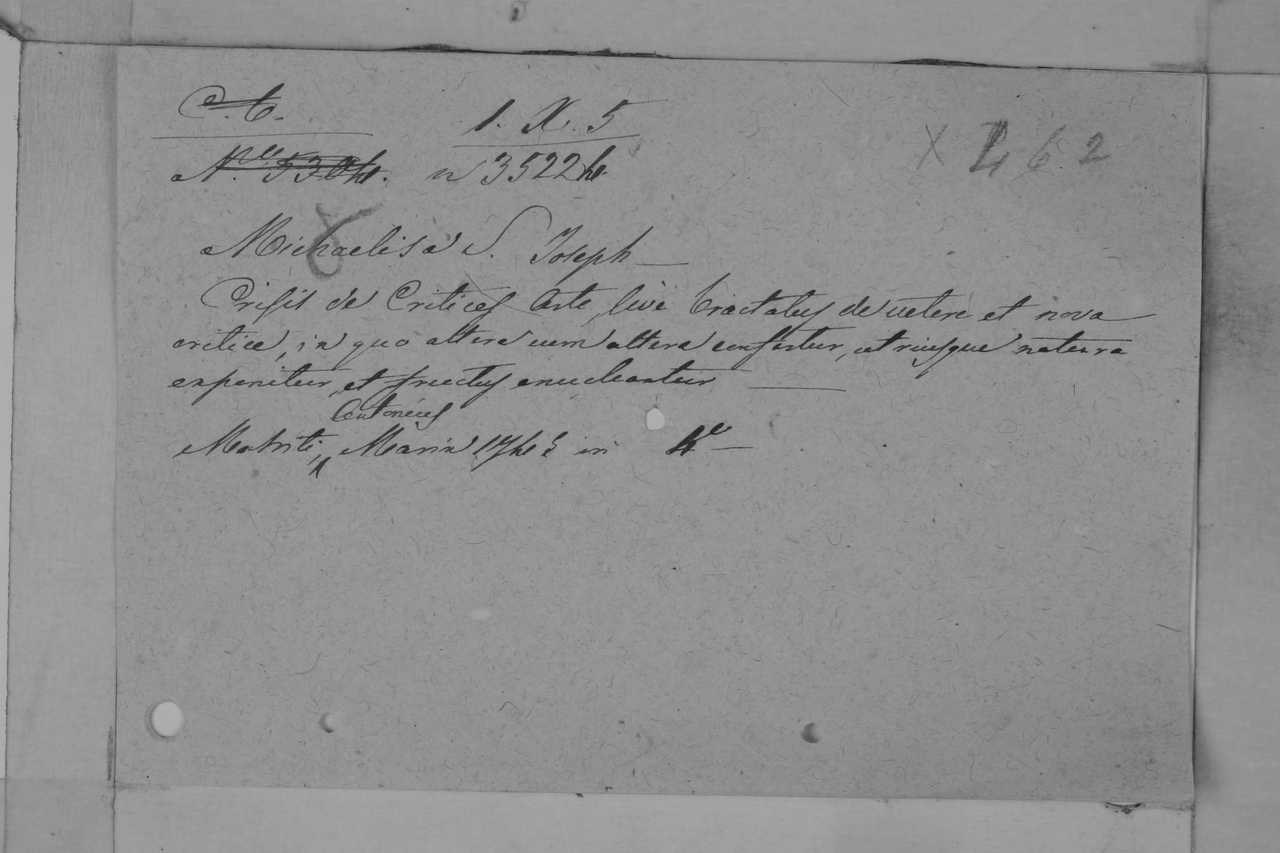 C. C.
1. X. 5
X L 6 2
N.º 5304.
n 35224
Michaelis a' S. Joseph
Crisis de Critices Arte, sive tractatus de vetere et nova
critice, in quo altera cum altera confertur, utriusque natura
expenitur, et fructus enucleantur
Antonius
Matriti, Marin 1745 in 4º